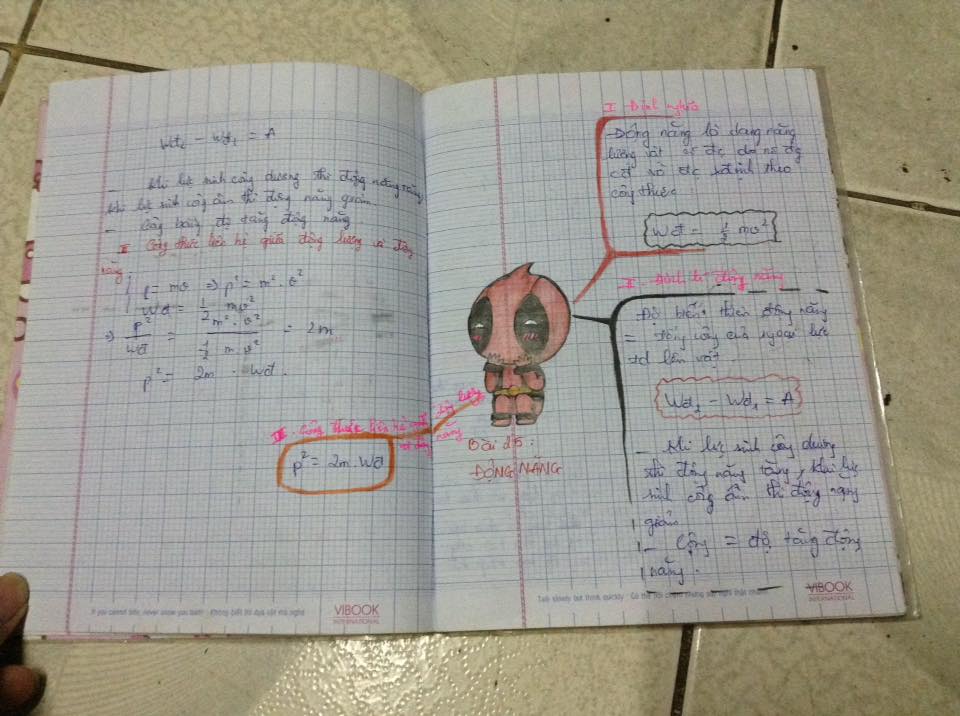 Wđ₂ - Wđ₁ = A
- Khi lực sinh công dương thì động năng tăng,
khi lực sinh công âm thì động năng giảm.
- Công bằng độ tăng động năng
III Công thức liên hệ giữa động lượng và động
năng
p = mv ⇒ p² = m² . v²
Wđ = 1/2 mv²
⇒ p²/Wđ = m² . v² / 1/2 m v² = 2m
p² = 2m . Wđ.
III. Công thức liên hệ giữa động lượng
và động năng
p² = 2m . Wđ
Bài 25:
ĐỘNG NĂNG
I Định nghĩa
- Động năng là dạng năng
lượng vật có đc do nó đg
cđ và đc xđịnh theo
công thức
Wđ = 1/2 mv²
II. Định lí động năng
Độ biến thiên động năng
= tổng công của ngoại lực
td lên vật
Wđ₂ - Wđ₁ = A
- Khi lực sinh công dương
thì động năng tăng, khi lực
sinh công âm thì động năng
giảm
- Công = độ tăng động
năng.
If you cannot bite, never show you teeth - Không biết thì dựa cột mà nghe
VIBOOK
INTERNATIONAL
Talk slowly but think quickly - Có thể nói chậm nhưng suy nghĩ thật nhanh
VIBOOK
INTERNATIONAL